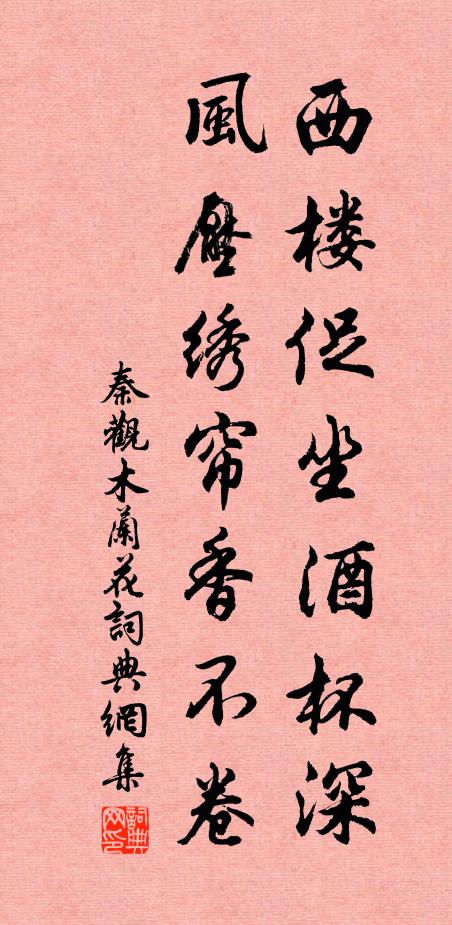 西楼促坐酒杯深
風壓绣帘香不卷
秦觀木蘭花詞典網集
詞典網印